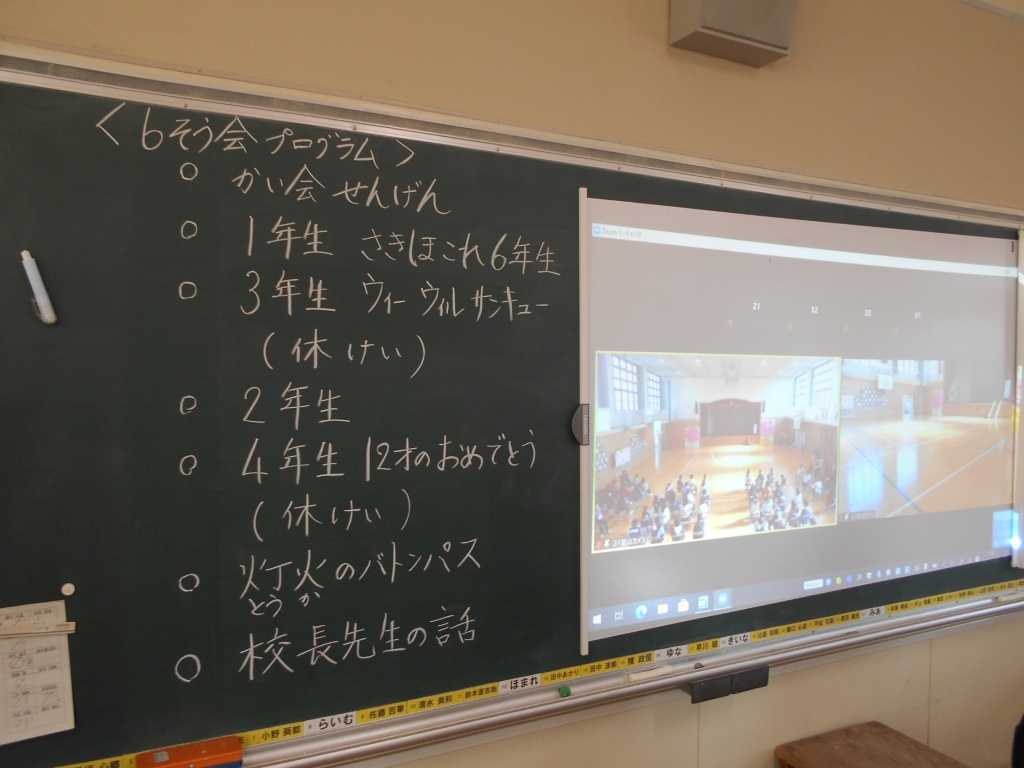 ＜6そう会プログラム＞
○ かい会せんげん
○ 1年生 さきほこれ6年生
○ 3年生 ウィーウィルサンキュー
(休けい)
○ 2年生
○ 4年生 12才のおめでとう
(休けい)
○ 灯火のバトンパス
とうか
○ 校長先生の話
Zoom ミーティング
21 32 22
らいむ
佐藤 百華
ほまれ
田中あかり
ゆな
きいな
みあ